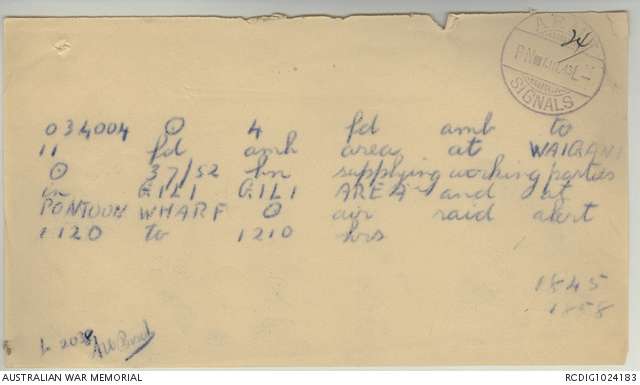 ARMY
SIGNALS
24
034004 0 4 fd amb to
11 fd amb area at WAIGANI
0 37/52 bn supplying working parties
in GILI GILI AREA and at
PONTOON WHARF 0 air raid alert
1120 to 1210 hrs
1845
1858
2038
AUSTRALIAN WAR MEMORIAL
RCDIG1024183